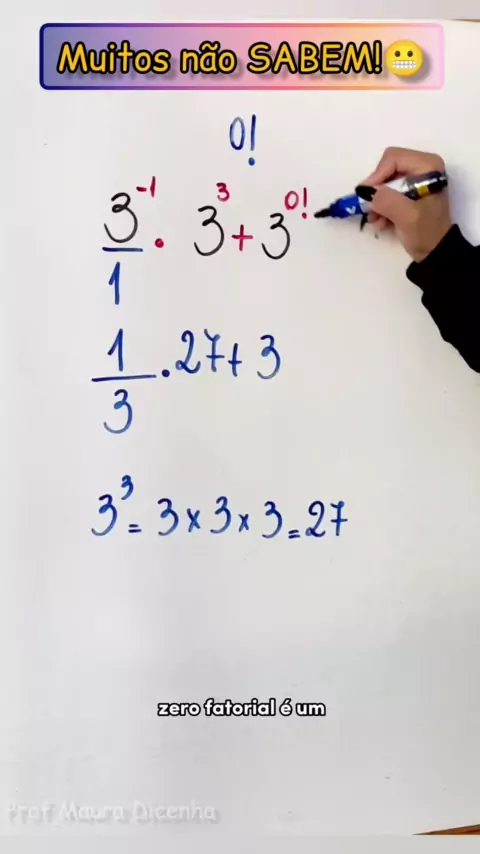 Muitos não SABEM!😬
0!
3⁻¹/1 · 3³ + 3⁰!
1/3 . 27 + 3
3³ = 3 × 3 × 3 = 27
zero fatorial é um
Prof Maura Dicenha